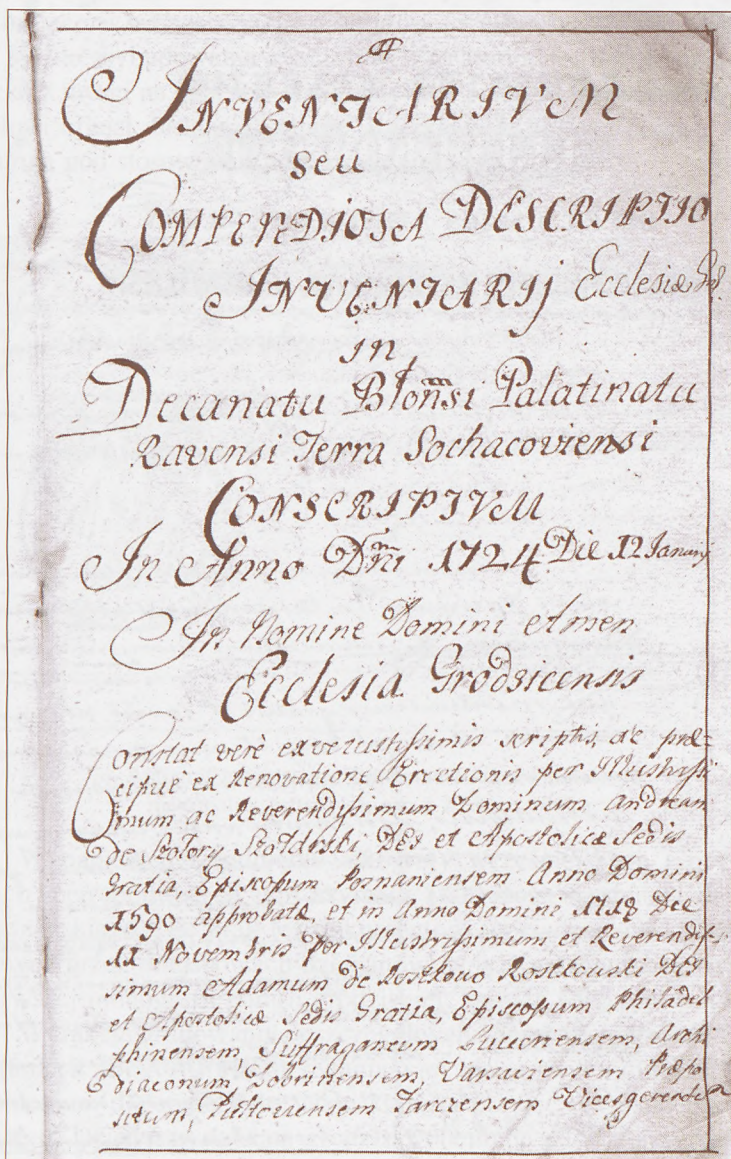 INVENTARIVM
seu
COMPENDIOSA DESCRIPTIO
INVENTARIJ Ecclesiæ
in
Decanatu Blonnsi Palatinatu
Ravensi Terra Sochacoviensi
CONSCRIPTVM
In Anno Dñi 1724 Die 12 Januarij
In Nomine Domini Amen
Ecclesia Grodzicensis
Constat verè ex vetustissimis scriptis, ac præ=
cipuè ex Renovatione Erectionis per Illustrissi
mum ac Reverendissimum Dominum Andream
de Szoldrski, DEI et Apostolicæ Sedis
Gratia, Episcopum Posnaniensem Anno Domini
1590 approbatæ, et in Anno Domini 1718 Die
11 Novembris per Illustrissimum et Reverendis=
simum Adamum de Rostkowo Rostkowski DEI
et Apostolicæ Sedis Gratia, Episcopum Philadel
phinensem, Suffraganeum Luceoriensem, Archi
diaconum, Dobrinensem, Varsaviensem Præpo
situm, Pultoviensem Tarczensem Vicesgerentem